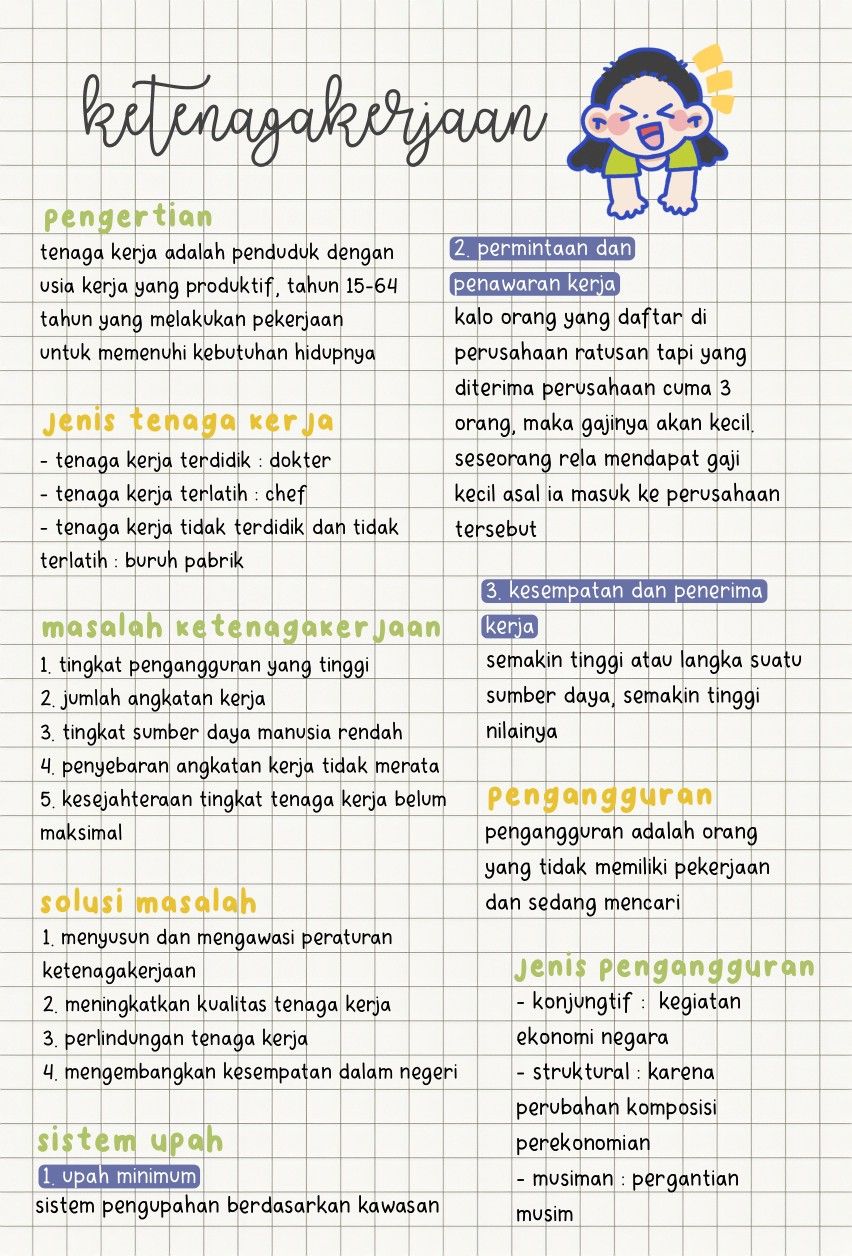 ketenagakerjaan
pengertian
tenaga kerja adalah penduduk dengan
usia kerja yang produktif, tahun 15-64
tahun yang melakukan pekerjaan
untuk memenuhi kebutuhan hidupnya
jenis tenaga kerja
- tenaga kerja terdidik : dokter
- tenaga kerja terlatih : chef
- tenaga kerja tidak terdidik dan tidak
terlatih : buruh pabrik
masalah ketenagakerjaan
1. tingkat pengangguran yang tinggi
2. jumlah angkatan kerja
3. tingkat sumber daya manusia rendah
4. penyebaran angkatan kerja tidak merata
5. kesejahteraan tingkat tenaga kerja belum
maksimal
solusi masalah
1. menyusun dan mengawasi peraturan
ketenagakerjaan
2. meningkatkan kualitas tenaga kerja
3. perlindungan tenaga kerja
4. mengembangkan kesempatan dalam negeri
sistem upah
1. upah minimum
sistem pengupahan berdasarkan kawasan
2. permintaan dan
penawaran kerja
kalo orang yang daftar di
perusahaan ratusan tapi yang
diterima perusahaan cuma 3
orang, maka gajinya akan kecil.
seseorang rela mendapat gaji
kecil asal ia masuk ke perusahaan
tersebut
3. kesempatan dan penerima
kerja
semakin tinggi atau langka suatu
sumber daya, semakin tinggi
nilainya
pengangguran
pengangguran adalah orang
yang tidak memiliki pekerjaan
dan sedang mencari
jenis pengangguran
- konjungtif : kegiatan
ekonomi negara
- struktural : karena
perubahan komposisi
perekonomian
- musiman : pergantian
musim